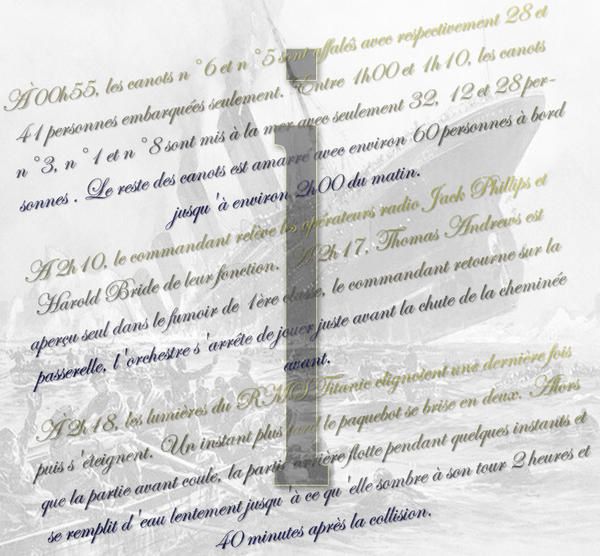 À 00h55, les canots n°6 et n°5 sont affalés avec respectivement 28 et
41 personnes embarquées seulement. Entre 1h00 et 1h10, les canots
n°3, n°1 et n°8 sont mis à la mer avec seulement 32, 12 et 28 per-
sonnes. Le reste des canots est amarré avec environ 60 personnes à bord
jusqu'à environ 2h00 du matin.
À 2h10, le commandant relève les opérateurs radio Jack Phillips et
Harold Bride de leur fonction. À 2h17, Thomas Andrews est
aperçu seul dans le fumoir de 1ère classe, le commandant retourne sur la
passerelle, l'orchestre s'arrête de jouer juste avant la chute de la cheminée
avant.
À 2h18, les lumières du RMS Titanic clignotent une dernière fois
puis s'éteignent. Un instant plus tard le paquebot se brise en deux. Alors
que la partie avant coule, la partie arrière flotte pendant quelques instants et
se remplit d'eau lentement jusqu'à ce qu'elle sombre à son tour 2 heures et
40 minutes après la collision.